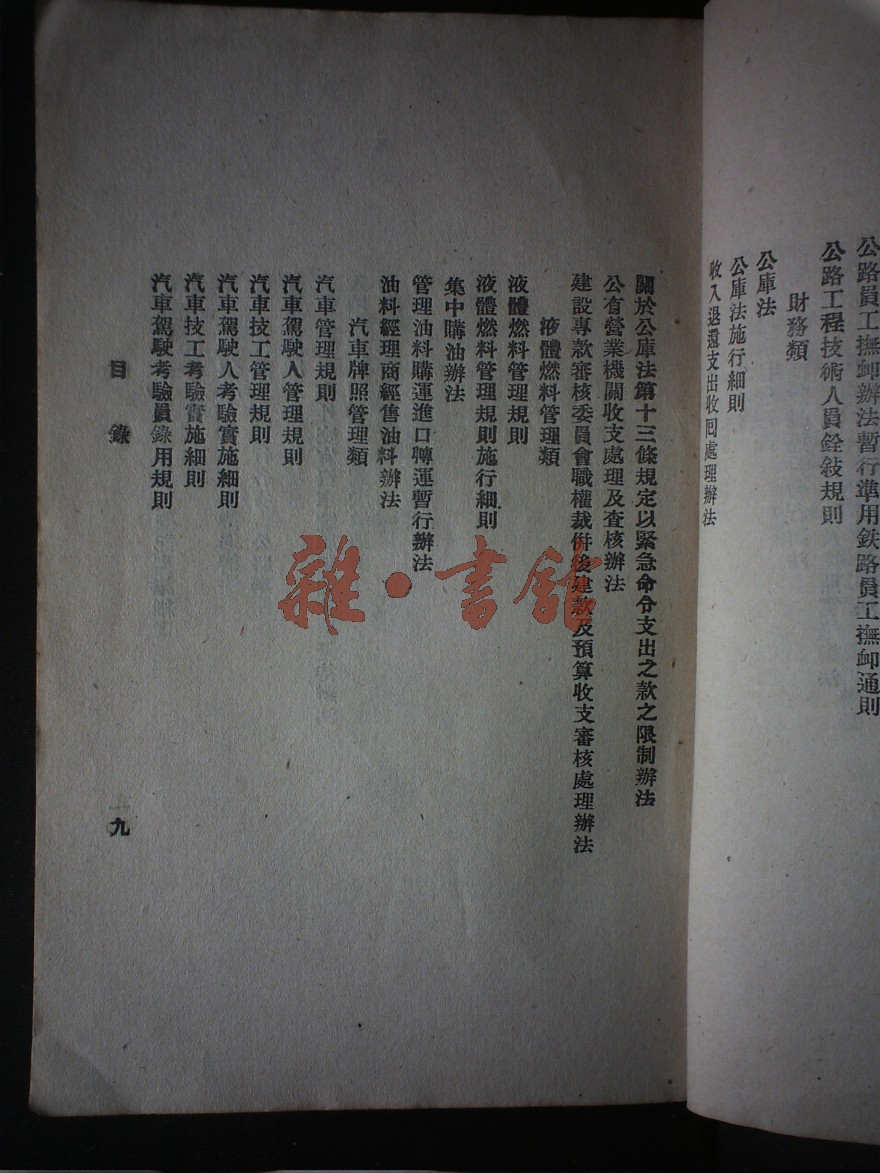 公路員工撫卹辦法暫行準用鉄路員工撫卹通則
公路工程技術人員銓敍規則
財務類
公庫法
公庫法施行細則
收入退還支出收回處理辦法
關於公庫法第十三條規定以緊急命令支出之款之限制辦法
公有營業機關收支處理及查核辦法
建設專款審核委員會職權裁併後建款及預算收支審核處理辦法
液體燃料管理類
液體燃料管理規則
液體燃料管理規則施行細則
集中購油辦法
管理油料購運進口轉運暫行辦法
油料經理商經售油料辦法
汽車牌照管理類
汽車管理規則
汽車駕駛人管理規則
汽車技工管理規則
汽車駕駛人考驗實施細則
汽車技工考驗實施細則
汽車駕駛考驗員錄用規則
目錄
九
雜·書館